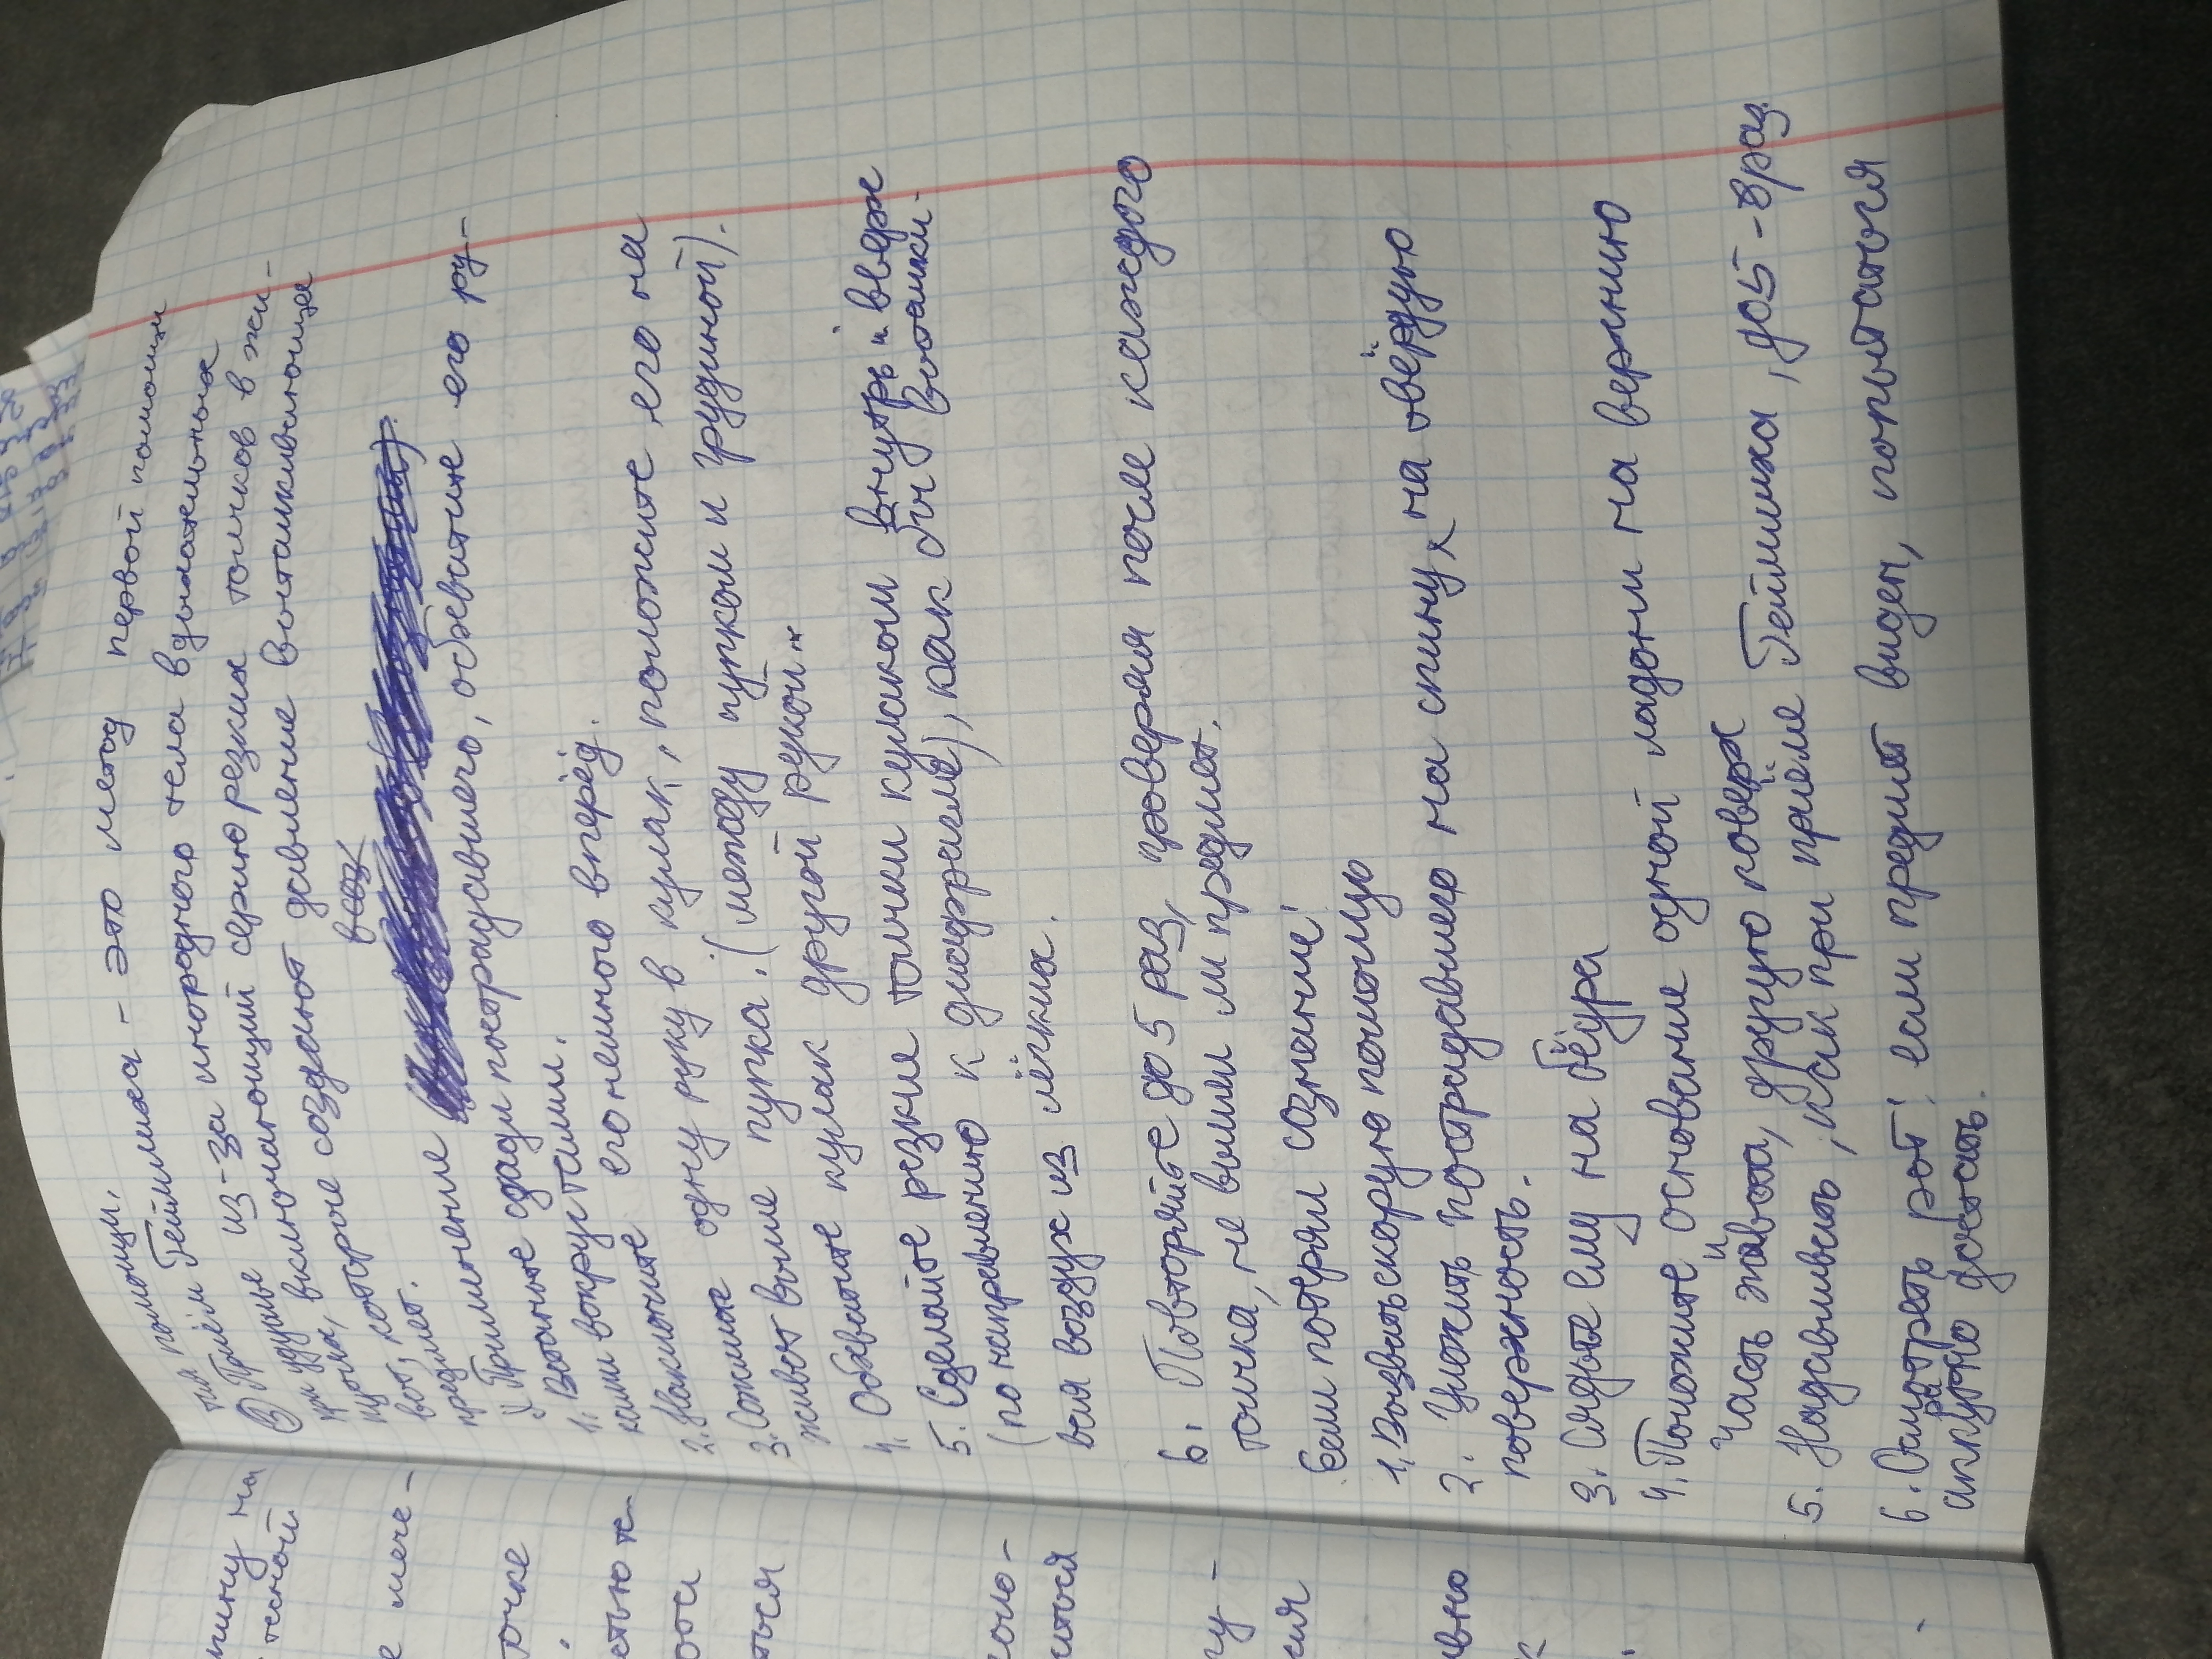 помощи.
③ Приём Геймлиха - это метод первой помощи
при удушье из-за инородного тела в дыхательных
включающий серию резких толчков в жи-
вот, которое создают давление выталкивающие
предмет.
Применение
1. Встаньте сзади пострадавшего, обхватите его ру-
ками вокруг талии.
2. Наклоните его немного вперёд.
3. Сожмите одну руку в кулак, положите его на
живот выше пупка. (между пупком и грудиной).
4. Обхватите кулак другой рукой.
5. Сделайте резкие толчки кулаком внутрь и вверх
(по направлению к диафрагме), как бы выталки-
вая воздух из лёгких.
6. Повторяйте до 5 раз, проверяя после каждого
толчка, не вышел ли предмет.
Если потерял сознание!
1. Вызвать скорую помощую
2. Уложить пострадавшего на спину, на твёрдую
поверхность.
3. Сядьте ему на бёдра
4. Положите основание одной ладони на верхнию
часть живота, другую поверх
5. Надавливать, как при приёме Геймлиха, до 5-8 раз
6. Осмотреть рот! если предмет виден, попытаться
аккуратно достать.
спину на
е мече-
очке
ться
оло-
иться